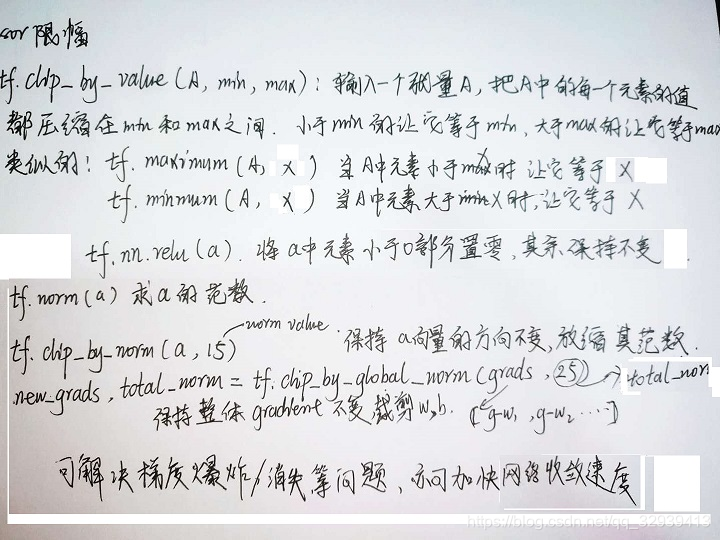 sor限幅
tf.chip_by_value(A, min, max): 输入一个张量A, 把A中的每一个元素的值
都压缩在min和max之间. 小于min的让它等于min, 大于max的让它等于max
类似的: tf. maximum (A, x) 当A中元素小于x时 让它等于 X
tf. minmum (A, x) 当A中元素大于X时, 让它等于 X
tf.nn.relu(a). 将a中元素小于0部分置零, 其余保持不变.
tf.norm(a) 求a的范数.
norm value
tf. chip_by_norm(a, 15) 保持a向量的方向不变, 放缩其范数.
new_grads, total_norm = tf.chip_by_global_norm(grads, 25) → total_norm
保持整体gradient不变裁剪w,b. [g-w1, g-w2 ....]
可解决梯度爆炸/消失等问题, 亦可加快网络收敛速度
https://blog.csdn.net/qq_32939413